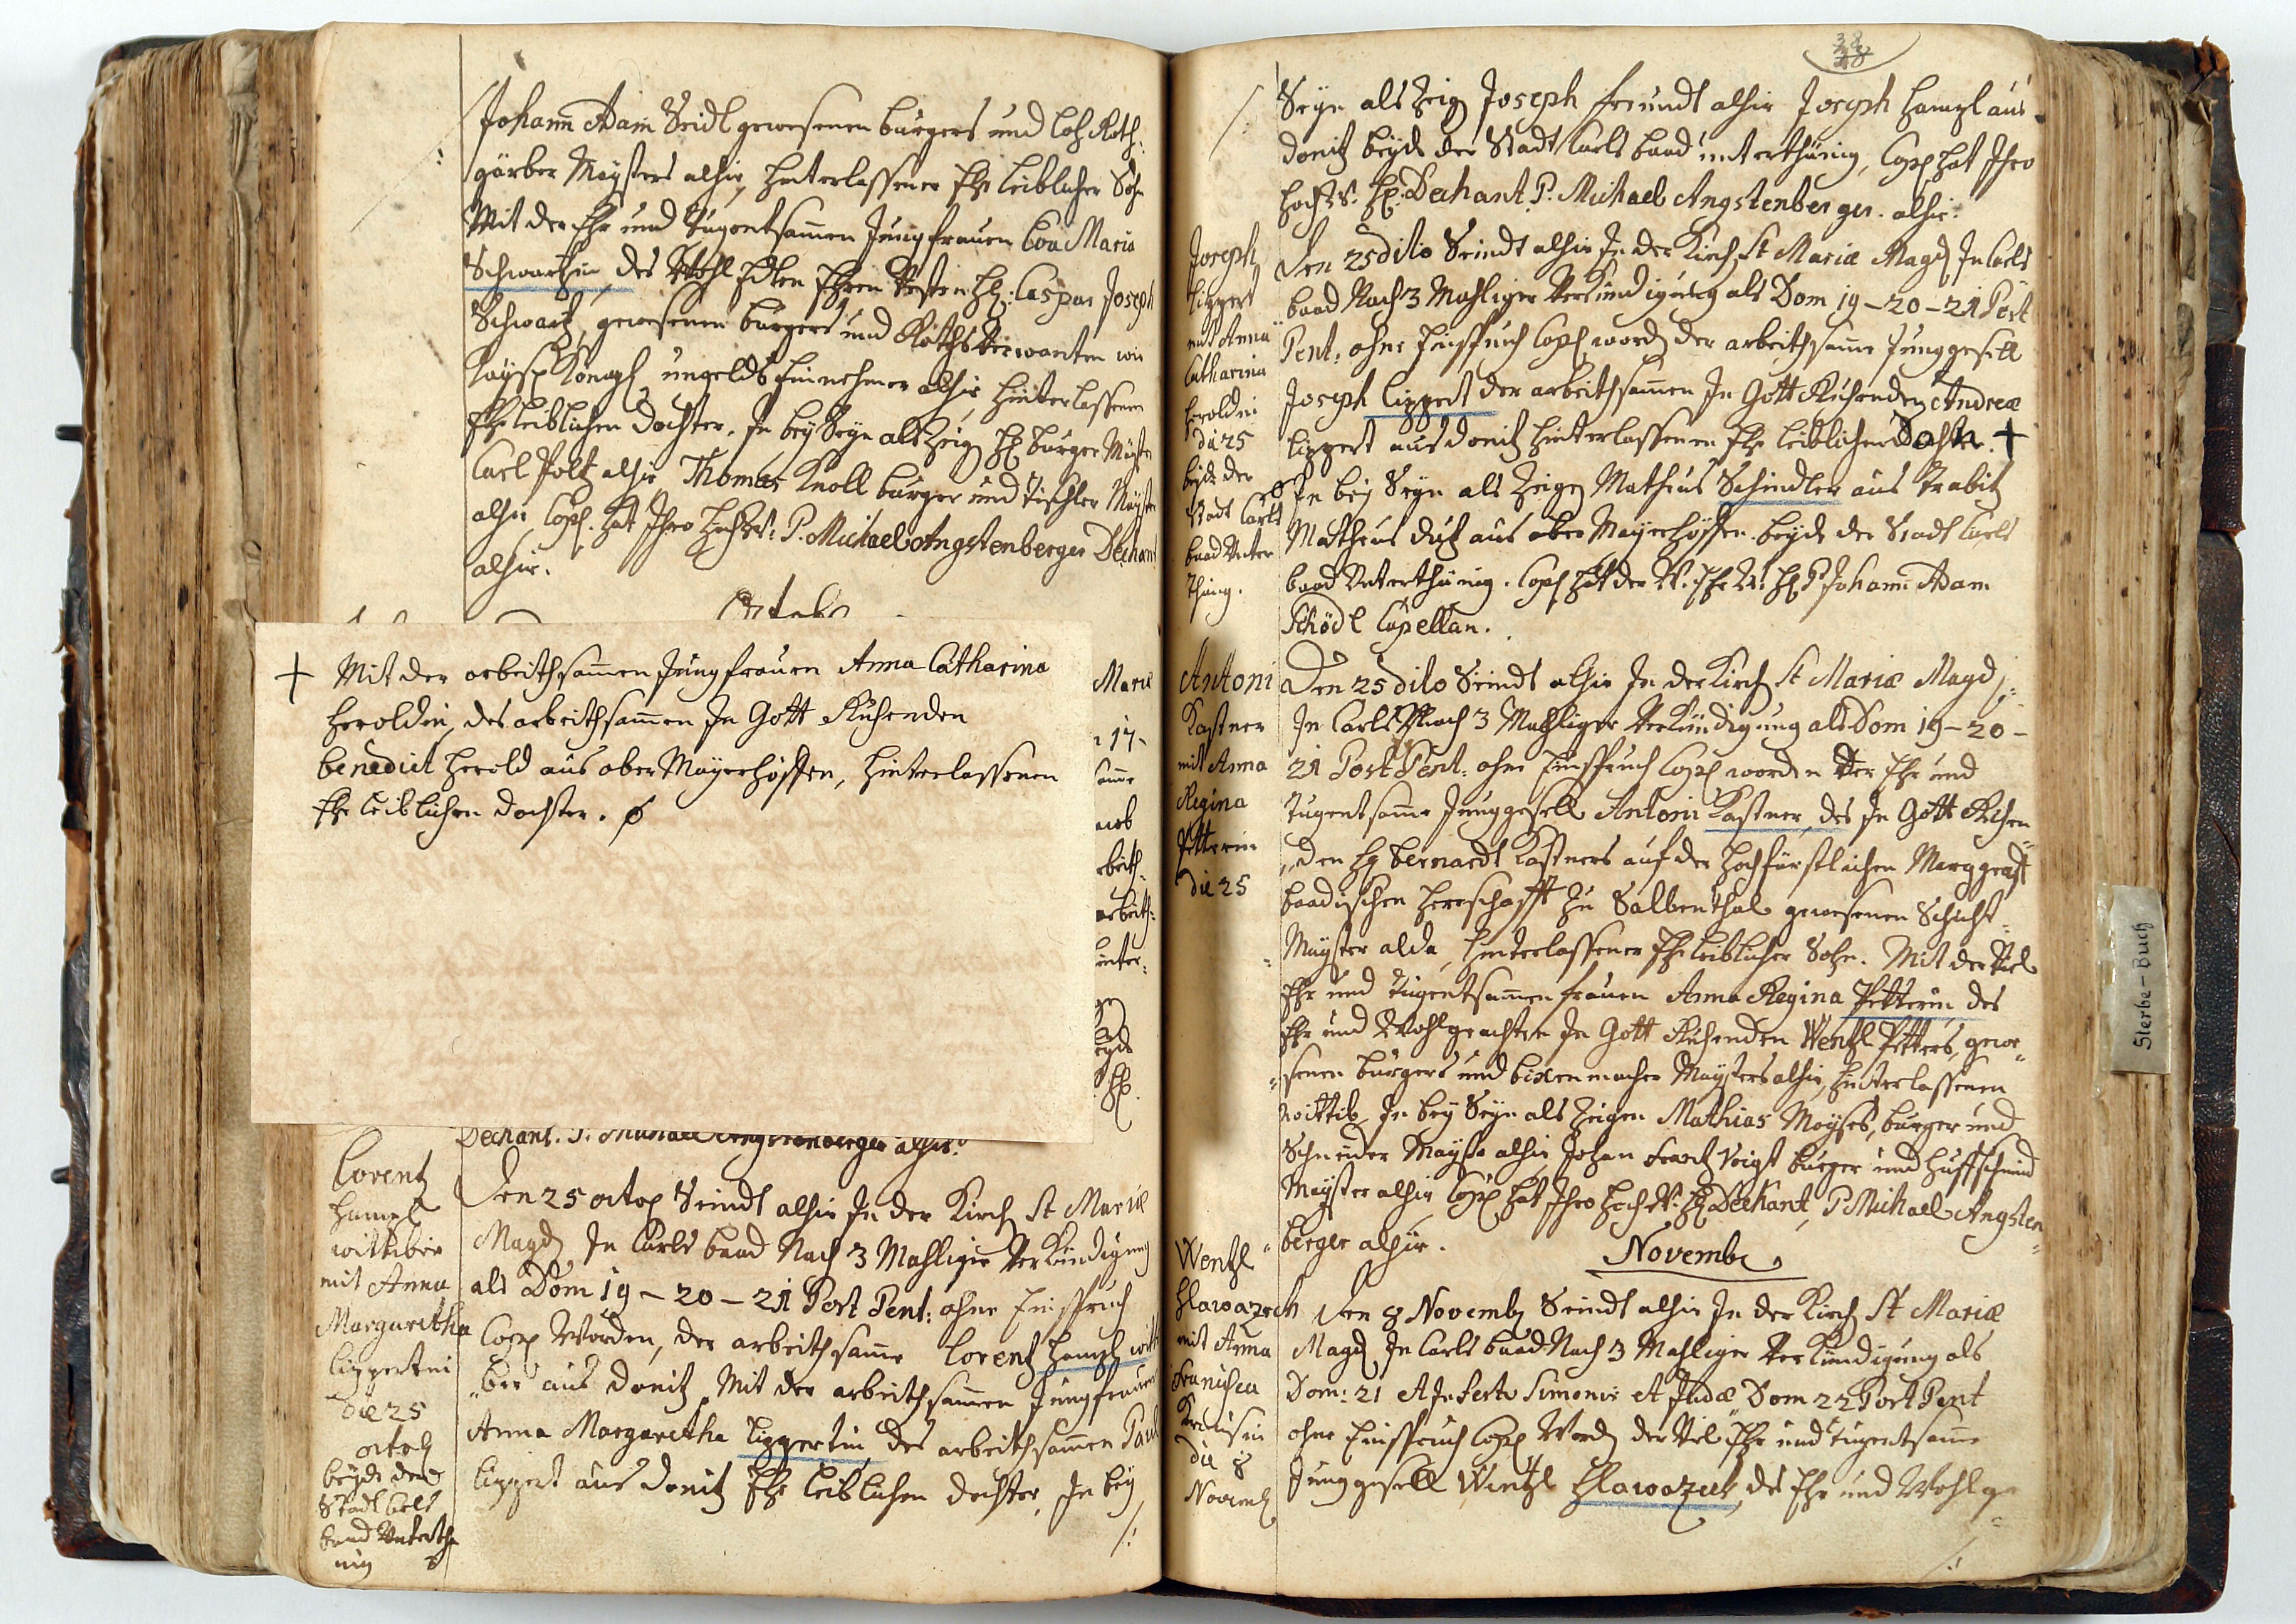 Johann Adam Seidl gewesenen burgers und Loh Roth:
gärber Maysters alhir, hinterlassener Ehe leiblicher Sohn
Mit der Ehr und Tugentsamen Jungfrauen Eva Maria
Schwartzin, des Wohl Edlen Ehren Vesten H: Caspar Joseph
Schwartz, gewesenen burgers und Raths Verwanten wie
Kayß Königl ungelds Einnehmer alhir, hinterlassenen
Ehe leiblichen dochter. In bey Seyn als Zeig H burger Mayster
Carl Poltz alhir, Thomas Knoll burger und Tischler Mayster
alhir, Cop. hat Ihro Hochw: P. Michael Angstenberger Dechant
alhir.
+ Mit der arbeithsamen Jungfrauen Anna Catharina
Heroldin, des arbeithsamen In Gott Ruhenden
benedict Herold aus ober Mayerhöffen, hinterlassenen
Ehe leiblichen dochter.
Mariæ
17-
same
arbeith-
hinter:
beyde
H.
Dechant. P. Michael Angstenberger alhir.
Lorentz
Hampl
wittiber
mit Anna
Margaretha
Lippertin
die 25
octob
beyde der
Stadt Cels
baad Unterthä
nig
Den 25 octob Seindt alhir In der Kirch St Mariæ
Magd In Carls baad Nach 3 Mahliger Verkündigung
als Dom 19 - 20 - 21 Post Pent: ohne Einspruch
Cop Worden, der arbeithsame Lorentz Hampl witti
ber aus donitz Mit der arbeithsamen Jungfrauen
Anna Margaretha Lippertin des arbeithsamen Paul
Lippert aus donitz Ehe leiblichen dochter, In bey
/:
38
Seyn als Zeig Joseph freundt alhir Joseph Hampl aus
donitz beyde der Stadt Carls baad unterthänig, Cop hat Ihro
Hochw: H: Dechant P. Michael Angstenberger. alhir.
Joseph
Lippert
mit Anna
Catharina
Heroldin
die 25
beyde der
Stadt Carls
baad Unter
thänig.
Den 25 dito Seindt alhir In der Kirch St Mariæ Magd In Carls
baad Nach 3 Mahliger Verkündigung als Dom 19 - 20 - 21 Post
Pent: ohne Einspruch Cop word der arbeithsame Junggesell
Joseph Lippert der arbeithsamen In Gott Ruhenden Andreæ
Lippert aus donitz hinterlassenen Ehe leiblicher Sohn. +
In bey Seyn als Zeigen Matheus Schindler aus Trabitz
Matheus dutz aus ober Mayerhöffen beyde der Stadt Carls
baad Unterthänig. Cop hat der W. Ehr W: H P Johann Adam
Schödl Capellan.
Antoni
Kastner
mit Anna
Regina
Petterin
die 25
Den 25 dito Seindt alhir In der Kirch St Mariæ Magd:
In Carls Nach 3 Mahliger Verkündigung als Dom 19 - 20 -
21 Post Pent: ohne Einspruch Cop worden der Ehr und
Tugentsame Junggesell Antoni Kastner, des In Gott Ruhen
den H bernardt Kastners auf der Hochfürstlichen Marggraff
baadischen Herrschafft Zu Salbenthal gewesenen Schicht
Mayster alda, hinterlassener Ehe leiblicher Sohn. Mit der Viel
Ehr und Tugentsamen frauen Anna Regina Petterin des
Ehr und Wohlgeachten In Gott Ruhenden Wentzl Petters, gewe
senen burgers und bixenmacher Maysters alhir, hinterlassenen
wittib, In bey Seyn als Zeigen Mathias Moyses, burger und
Schneider Mayster alhir Johan Frantz Voigt burger und Huffschmid
Mayster alhir, Cop hat Ihro Hochw: H Dechant, P Michael Angsten
berger alhir.
Novemb
Wentzl
Hlawazech
mit Anna
Francisca
die 8
Novemb
Den 8 Novemb Seindt alhir In der Kirch St Mariæ
Magd In Carls baad Nach 3 Mahliger Verkündigung als
Dom: 21 et In Festo Simonis et Judæ, Dom 22 Post Pent
ohne Einspruch Cop Word der Viel Ehr und Tugentsame
Junggesell Wentzl Hlawazech, des Ehr und Wohlge
/:
Sterbe-Buch